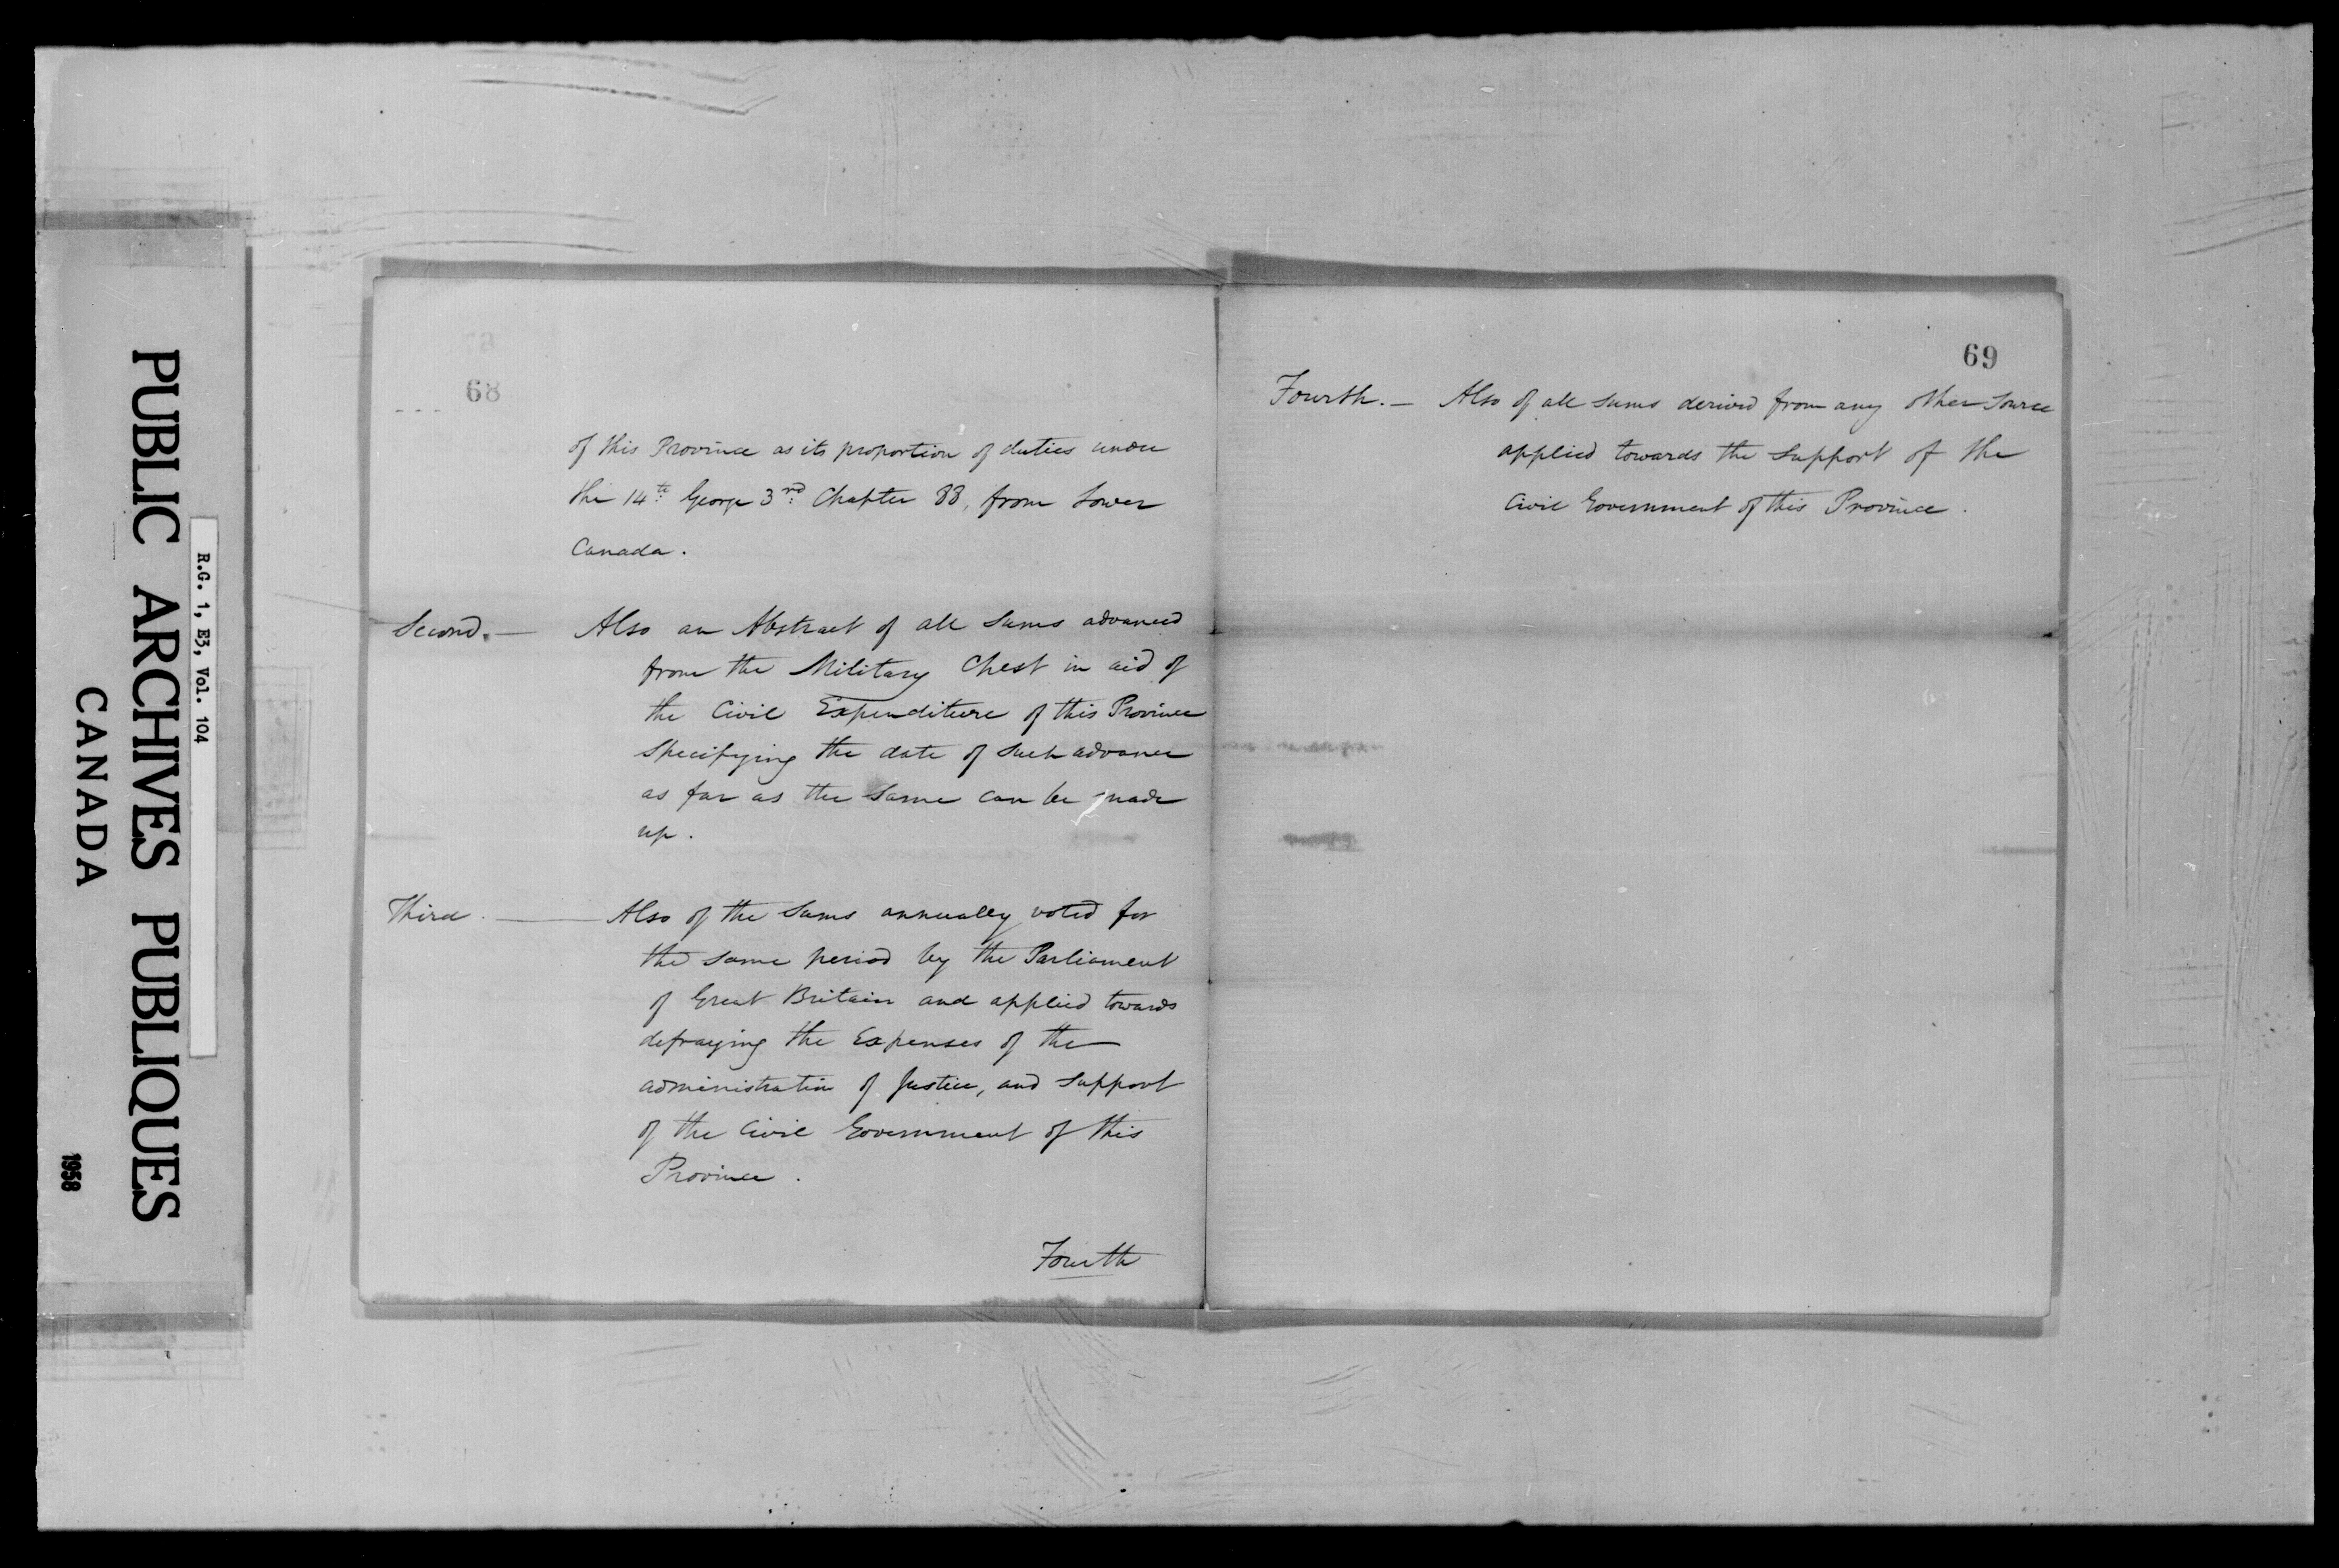 PUBLIC ARCHIVES PUBLIQUES
CANADA
R.G. 1, E3, Vol. 104
1958
68
of this Province as its proportion of duties under
the 14th George 3rd Chapter 88, from Lower
Canada.
Second. — Also an Abstract of all sums advanced
from the Military Chest in aid of
the Civil Expenditure of this Province
specifying the date of such advance
as far as the same can be made
up.
Third. — Also of the sums annually voted for
the same period by the Parliament
of Great Britain and applied towards
defraying the Expenses of the
administration of Justice, and support
of the Civil Government of this
Province.
Fourth
69
Fourth. — Also of all sums derived from any other source
applied towards the support of the
Civil Government of this Province.